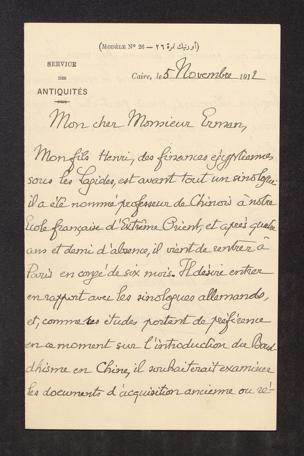 (MODÈLE Nº 26 — أورنيك نمرة ٢٦)
SERVICE
DES
ANTIQUITÉS
Caire, le 5 Novembre 1912
Mon cher Monsieur Erman,
Mon fils Henri, des finances égyptiennes
sous les Lagides, est avant tout un sinologue
il a été nommé professeur de Chinois à notre
Ecole française d'Extrême Orient, et après quatre
ans et demi d'absence, il vient de rentrer à
Paris en congé de six mois. Il désire entrer
en rapport avec les sinologues allemands,
et, comme ses études portent de préférence
en ce moment sur l'introduction du Boud-
dhisme en Chine, il souhaiterait examiner
les documents d'acquisition ancienne ou ré-